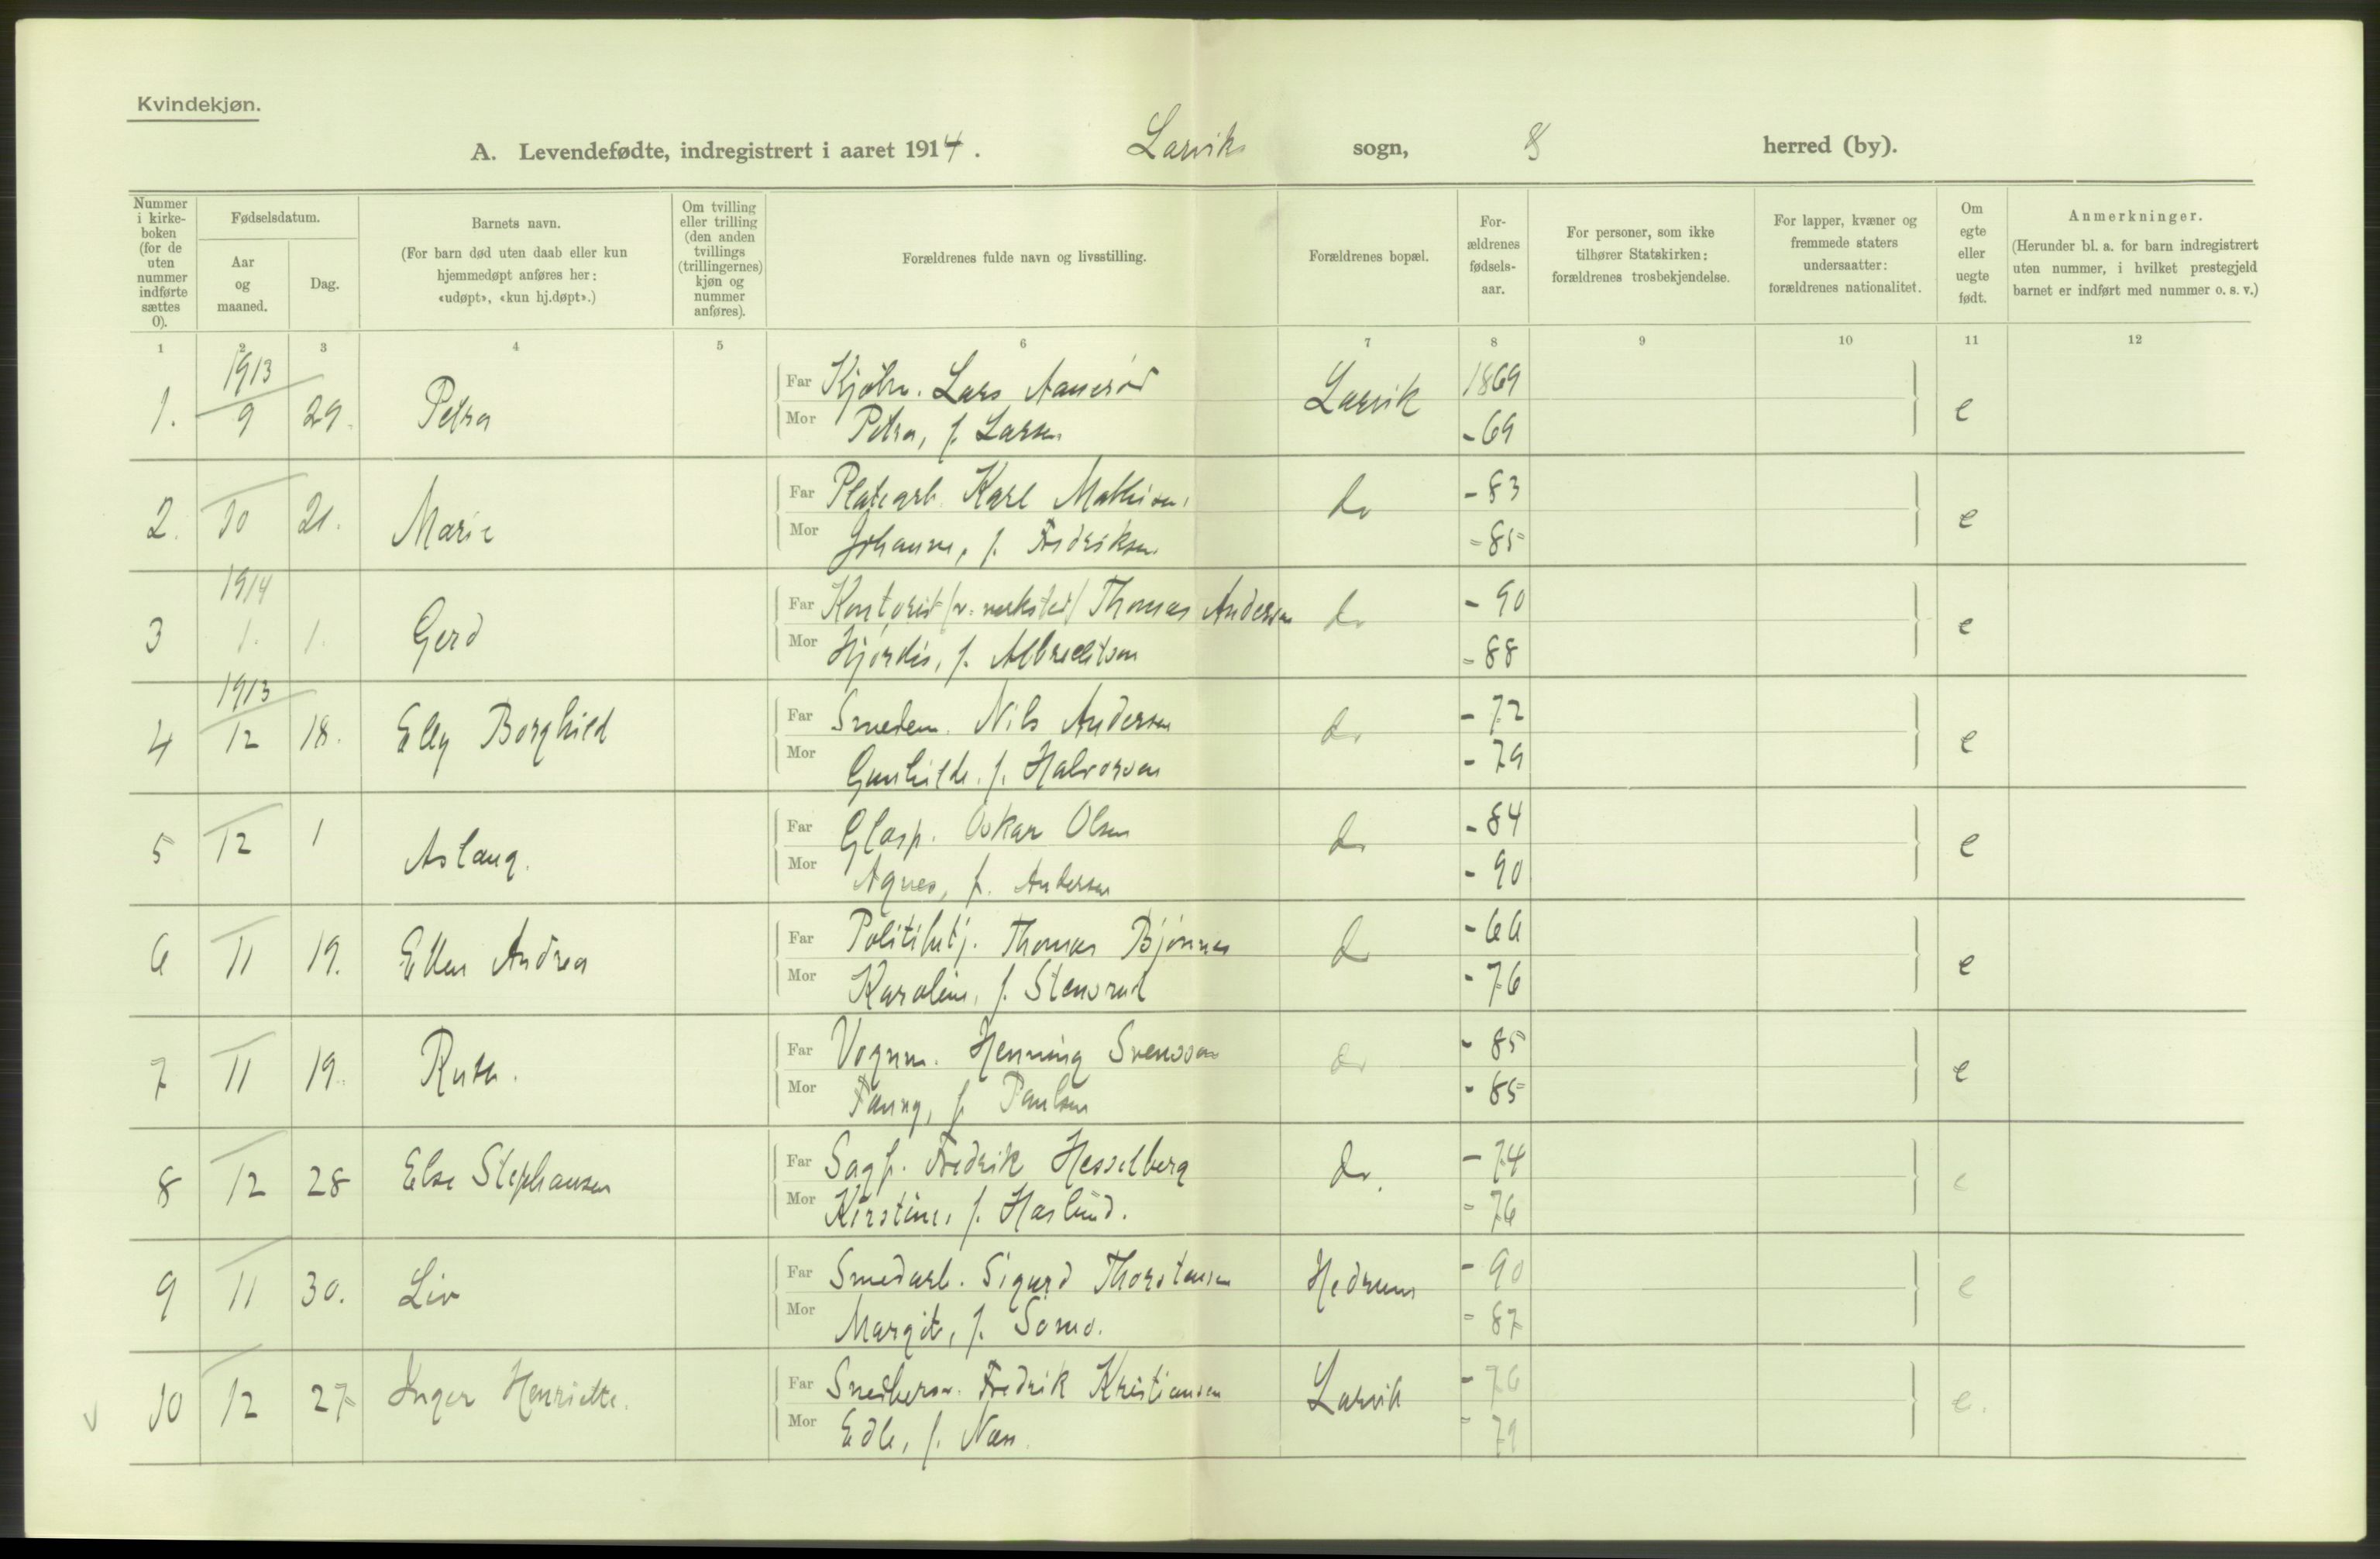 Kvindekjøn.
A. Levendefødte, indregistrert i aaret 1914. Larviks sogn, herred (by).
Nummer i kirke-boken (for de uten nummer indførte sættes 0).
Fødselsdatum.
Aar og maaned.
Dag.
Barnets navn.
(For barn død uten daab eller kun hjemmedøpt anføres her: «udøpt», «kun hj.døpt».)
Om tvilling eller trilling (den anden tvillings (trillingernes) kjøn og nummer anføres).
Forældrenes fulde navn og livsstilling.
Forældrenes bopæl.
For-ældrenes fødsels-aar.
For personer, som ikke tilhører Statskirken: forældrenes trosbekjendelse.
For lapper, kvæner og fremmede staters undersaatter: forældrenes nationalitet.
Om egte eller uegte født.
Anmerkninger.
(Herunder bl. a. for barn indregistrert uten nummer, i hvilket prestegjeld barnet er indført med nummer o. s. v.)
1 2 3 4 5 6 7 8 9 10 11 12
1. 1913 9 29. Petra Far Lars Larvik 1869 e
Mor Petra, f. Larsen -69
2. 10 21. Marie Far Platearb. Karl Mathisen do -83 e
Mor Johanne, f. Fredriksen -85
3 1914 1. 1. Gerd Far Kontorist (v. verksted) Thomas Andersen do -90 e
Mor Hjørdis, f. Albrechtsen -88
4 1913 12 18. Elly Borghild Far Smedem. Nils Andersen do -72 e
Mor Gunhilde, f. Halvorsen -79
5 12 1 Aslaug. Far Glasp. Oskar Olsen do -84 e
Mor Agnes, f. Andersen -90
6 11 19. Ellen Andrea Far Politibetj. Thomas Bjønnes do -66 e
Mor Karoline, f. Stensrud -76
7 11 19. Ruth. Far Vognm. Henning Svensson do -85 e
Mor Fanny, f. Paulsen -85
8 12 28 Else Stephansen Far Sagf. Fredrik Hesselberg do. -74 e
Mor Kirstine, f. Haslund. -76
9 11 30. Liv Far Smedarb. Sigurd Thorstensen Hedrum -90 e
Mor Margit, f. -87
10 12 27 Inger Henriette. Far Fredrik Kristiansen Larvik -76 e.
Mor Edle, f. Næss. -79